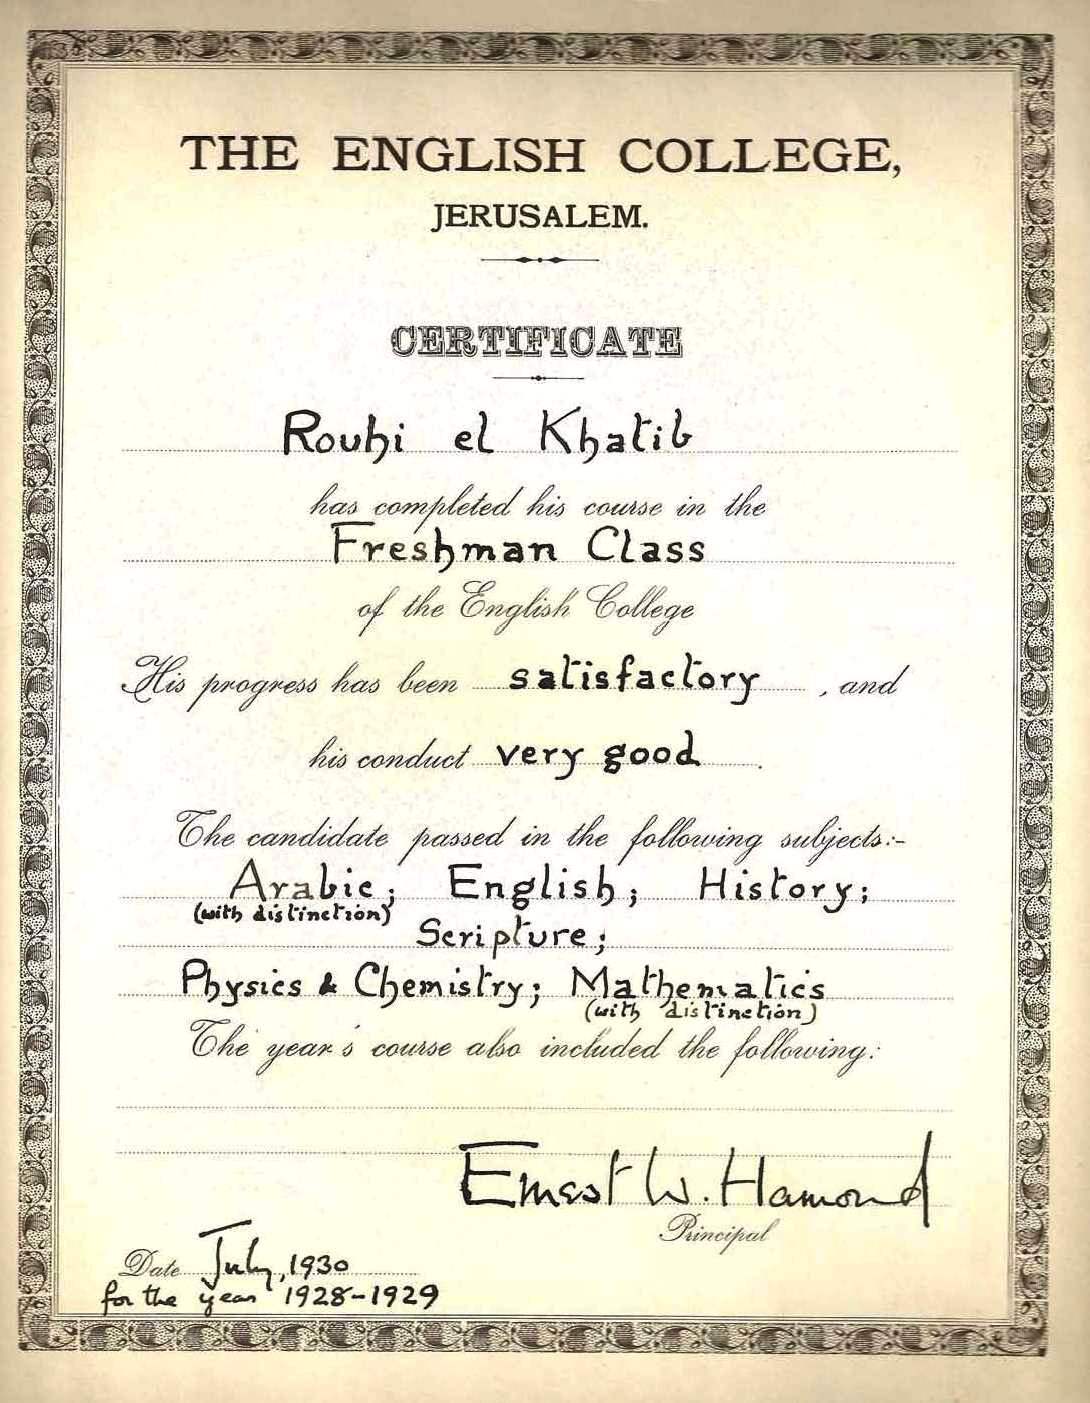 THE ENGLISH COLLEGE,
JERUSALEM.
CERTIFICATE
Rouhi el Khatib
has completed his course in the
Freshman Class
of the English College
His progress has been satisfactory, and
his conduct very good.
The candidate passed in the following subjects:-
Arabic; English; History;
(with distinction)
Scripture;
Physics & Chemistry; Mathematics
(with distinction)
The year's course also included the following:
Ernest W. Hamond
Principal
Date July, 1930
for the year 1928-1929